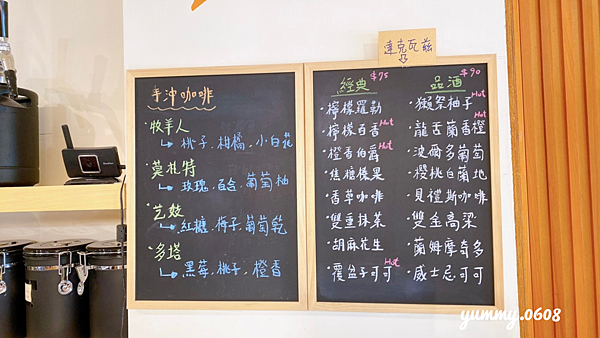 達克瓦茲
手沖咖啡
牧羊人
桃子.柑橘.小白花
莫札特
玫瑰.百合.葡萄柚
藝妓
紅糖.梅子.葡萄乾
多塔
黑莓.桃子.橙香
經典 $75
檸檬羅勒
檸檬百香 Hot
橙香伯爵 Hot
焦糖榛果
香草咖啡
雙重抹茶
胡麻花生
覆盆子可可 Hot
品酒 $90
獺祭柚子 Hot
龍舌蘭香橙 Hot
波爾多葡萄
櫻桃白蘭地
貝禮斯咖啡
雙金高粱
蘭姆摩奇多
威士忌可可
yummy.0608